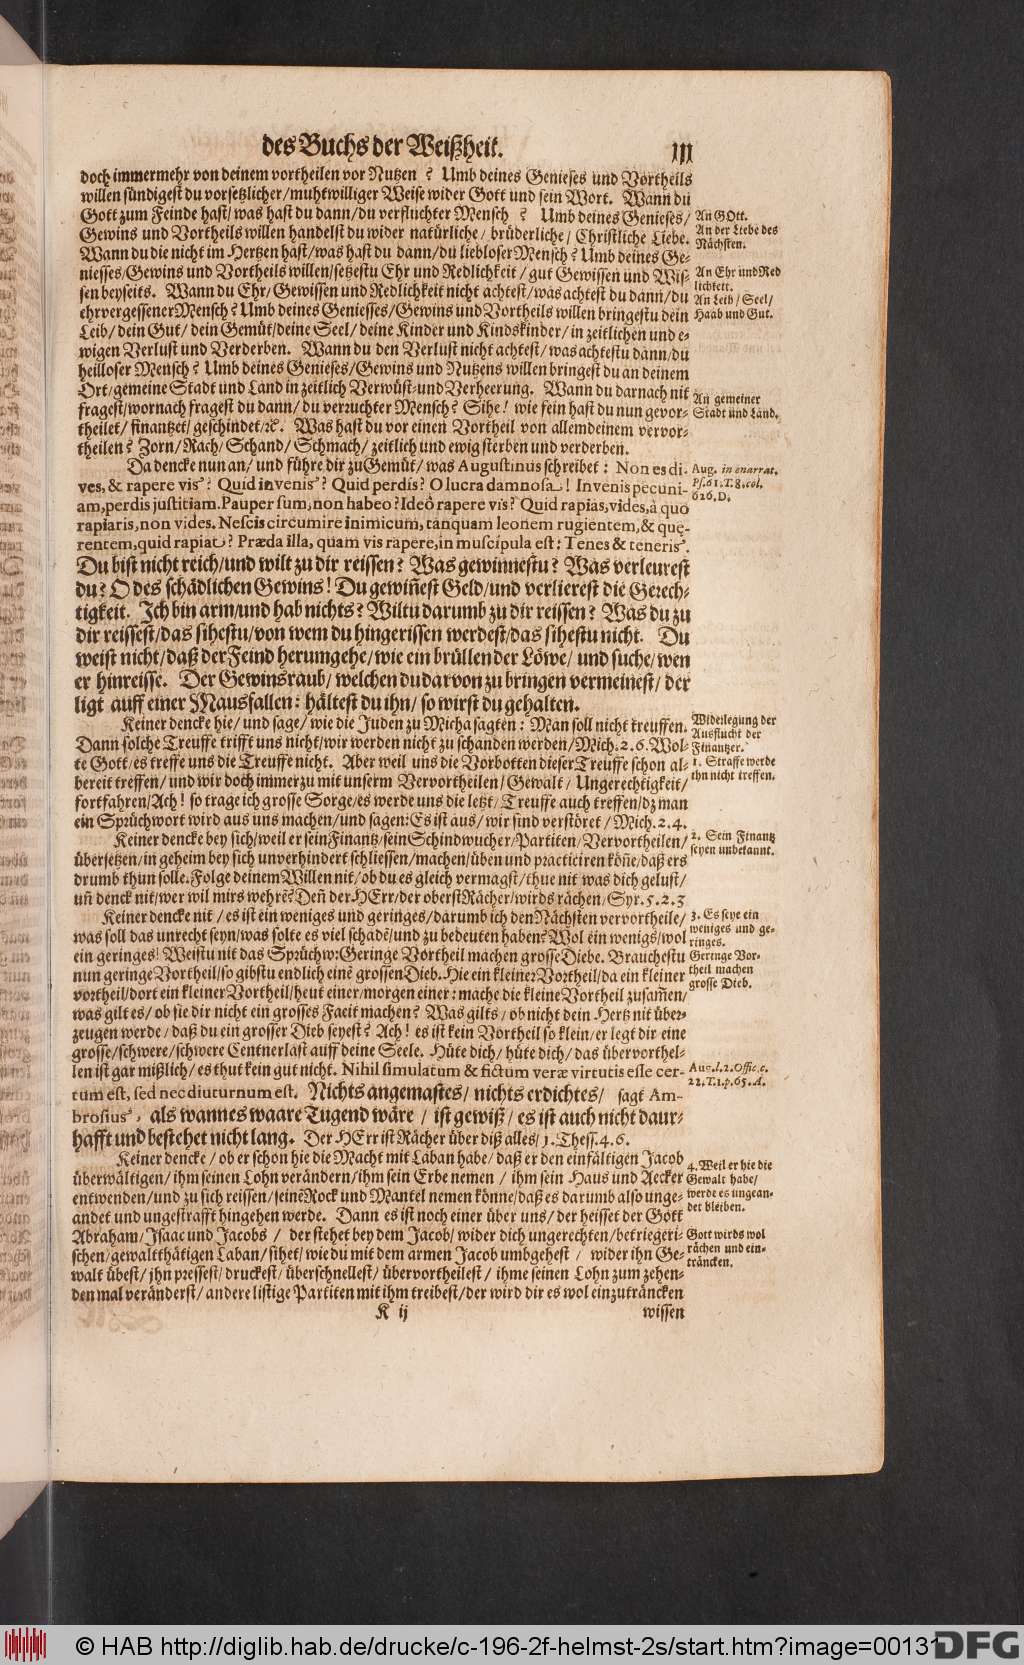 des Buchs der Weißheit. 111
doch immermehr von deinem vortheilen vor Nutzen? Umb deines Genieses und Vortheils
willen sündigest du vorsetzlicher/muhtwilliger Weise wider Gott und sein Wort. Wann du
Gott zum Feinde hast/was hast du dann/du verfluchter Mensch? Umb deines Genieses/
Gewins und Vortheils willen handelst du wider natürliche/brüderliche/Christliche Liebe.
Wann du die nicht im Hertzen hast/was hast du dann/du liebloser Mensch? Umb deines Ge-
niesses/Gewins und Vortheils willen/setzestu Ehr und Redlichkeit/gut Gewissen und Wis-
sen beyseits. Wann du Ehr/Gewissen und Redlichkeit nicht achtest/was achtest du dann/du
ehrvergessener Mensch? Umb deines Geniesses/Gewins und Vortheils willen bringestu dein
Leib/dein Gut/dein Gemüt/deine Seel/deine Kinder und Kindskinder/in zeitlichen und e-
wigen Verlust und Verderben. Wann du den Verlust nicht achtest/was achtestu dann/du
heilloser Mensch? Umb deines Genieses/Gewins und Nutzens willen bringest du an deinem
Ort/gemeine Stadt und Land in zeitlich Verwüst- und Verheerung. Wann du darnach nit
fragest/wornach fragest du dann/du verruchter Mensch? Sihe! wie fein hast du nun gevor-
theilet/finantzet/geschindet/ꝛc. Was hast du vor einen Vortheil von allem deinem vervor-
theilen? Zorn/Rach/Schand/Schmach/zeitlich und ewig sterben und verderben.
Da dencke nun an/und führe dir zu Gemüt/was Augustinus schreibet: Non es di-
ves, & rapere vis? Quid invenis? Quid perdis? O lucra damnosa! Invenis pecuni-
am, perdis justitiam. Pauper sum, non habeo? Ideò rapere vis? Quid rapias, vides, à quo
rapiaris, non vides. Nescis circumire inimicum, tanquam leonem rugientem, & quę-
rentem, quid rapiat? Præda illa, quam vis rapere, in muscipula est: Tenes & teneris.
Du bist nicht reich/und wilt zu dir reissen? Was gewinnestu? Was verleurest
du? O des schädlichen Gewins! Du gewiñest Geld/und verlierest die Gerech-
tigkeit. Ich bin arm/und hab nichts? Wiltu darumb zu dir reissen? Was du zu
dir reissest/das sihestu/von wem du hingerissen werdest/das sihestu nicht. Du
weist nicht/daß der Feind herumgehe/wie ein brüllender Löwe/und suche/wen
er hinreisse. Der Gewinsraub/welchen du darvon zu bringen vermeinest/der
ligt auff einer Mausfallen: hältest du ihn/so wirst du gehalten.
Keiner dencke hie/und sage/wie die Juden zu Micha sagten: Man soll nicht treuffen.
Dann solche Treuffe trifft uns nicht/wir werden nicht zu schanden werden/Mich. 2. 6. Wol-
te Gott/es treffe uns die Treuffe nicht. Aber weil uns die Vorbotten dieser Treuffe schon al-
bereit treffen/und wir doch immerzu mit unserm Vervortheilen/Gewalt/Ungerechtigkeit/
fortfahren/Ach! so trage ich grosse Sorge/es werde uns die letzt/Treuffe auch treffen/dz man
ein Sprüchwort wird aus uns machen/und sagen: Es ist aus/wir sind verstöret/Mich. 2. 4.
Keiner dencke bey sich/weil er sein Finantz/sein Schindwucher/Partiten/Vervortheilen/
übersetzen/in geheim bey sich unverhindert schliessen/machen/üben und practiciren köñe/daß ers
drumb thun solle. Folge deinem Willen nit/ob du es gleich vermagst/thue nit was dich gelust/
uñ denck nit/wer wil mirs wehrẽ? Deñ der HErr/der oberst Rächer/wirds rächen/Syr. 5. 2. 3
Keiner dencke nit/es ist ein weniges und geringes/darumb ich den Nächsten vervortheile/
was soll das unrecht seyn/was solte es viel schadẽ/und zu bedeuten haben? Wol ein wenigs/wol
ein geringes! Weistu nit das Sprüchw: Geringe Vortheil machen grosse Diebe. Brauchestu
nun geringe Vortheil/so gibstu endlich einẽ grossen Dieb. Hie ein kleiner Vortheil/da ein kleiner
vortheil/dort ein kleiner Vortheil/heut einer/morgen einer: mache die kleine Vortheil zusam̃en/
was gilt es/ob sie dir nicht ein grosses Facit machen? Was gilts/ob nicht dein Hertz nit über-
zeugen werde/daß du ein grosser Dieb seyest? Ach! es ist kein Vortheil so klein/er legt dir eine
grosse/schwere/schwere Centnerlast auff deine Seele. Hüte dich/hüte dich/das übervorthei-
len ist gar mißlich/es thut kein gut nicht. Nihil simulatum & fictum veræ virtutis esse cer-
tum est, sed nec diuturnum est. Nichts angemastes/nichts erdichtes/ sagt Am-
brosius, als wannes waare Tugend wäre/ist gewiß/es ist auch nicht daur-
hafft und bestehet nicht lang. Der HErr ist Rächer über diß alles/1. Thess. 4. 6.
Keiner dencke/ob er schon hie die Macht mit Laban habe/daß er den einfältigen Jacob
überwältigen/ihm seinen Lohn verändern/ihm sein Erbe nemen/ihm sein Haus und Aecker
entwenden/und zu sich reissen/seinẽ Rock und Mantel nemen könne/daß es darumb also unge-
andet und ungestrafft hingehen werde. Dann es ist noch einer über uns/der heisset der Gott
Abraham/Isaac und Jacobs/der stehet bey dem Jacob/wider dich ungerechten/betriegeri-
schen/gewaltthätigen Laban/sihet/wie du mit dem armen Jacob umbgehest/wider ihn Ge-
walt übest/jhn pressest/druckest/überschnellest/übervortheilest/ihme seinen Lohn zum zehen-
den mal veränderst/andere listige Partiten mit ihm treibest/der wird dir es wol einzuträncken
K ij wissen
An GOtt.
An der Liebe des
Nächsten.
An Ehr und Red
lichkeit.
An Leib/Seel/
Haab und Gut.
An gemeiner
Stadt und Land.
Aug. in enarrat.
Ps. 61. T. 8. col.
626. D.
Widerlegung der
Ausflucht der
Finantzer.
1. Straffe werde
ihn nicht treffen.
2. Sein Finantz
seyen unbekannt.
3. Es seye ein
weniges und ge-
ringes.
Geringe Vor-
theil machen
grosse Dieb.
Aug. l. 2. Offic. c.
22. T. 1. p. 65. A.
4. Weil er hie die
Gewalt habe/
werde es ungean-
det bleiben.
Gott wirds wol
rächen und ein-
träncken.
© HAB http://diglib.hab.de/drucke/c-196-2f-helmst-2s/start.htm?image=00131
DFG